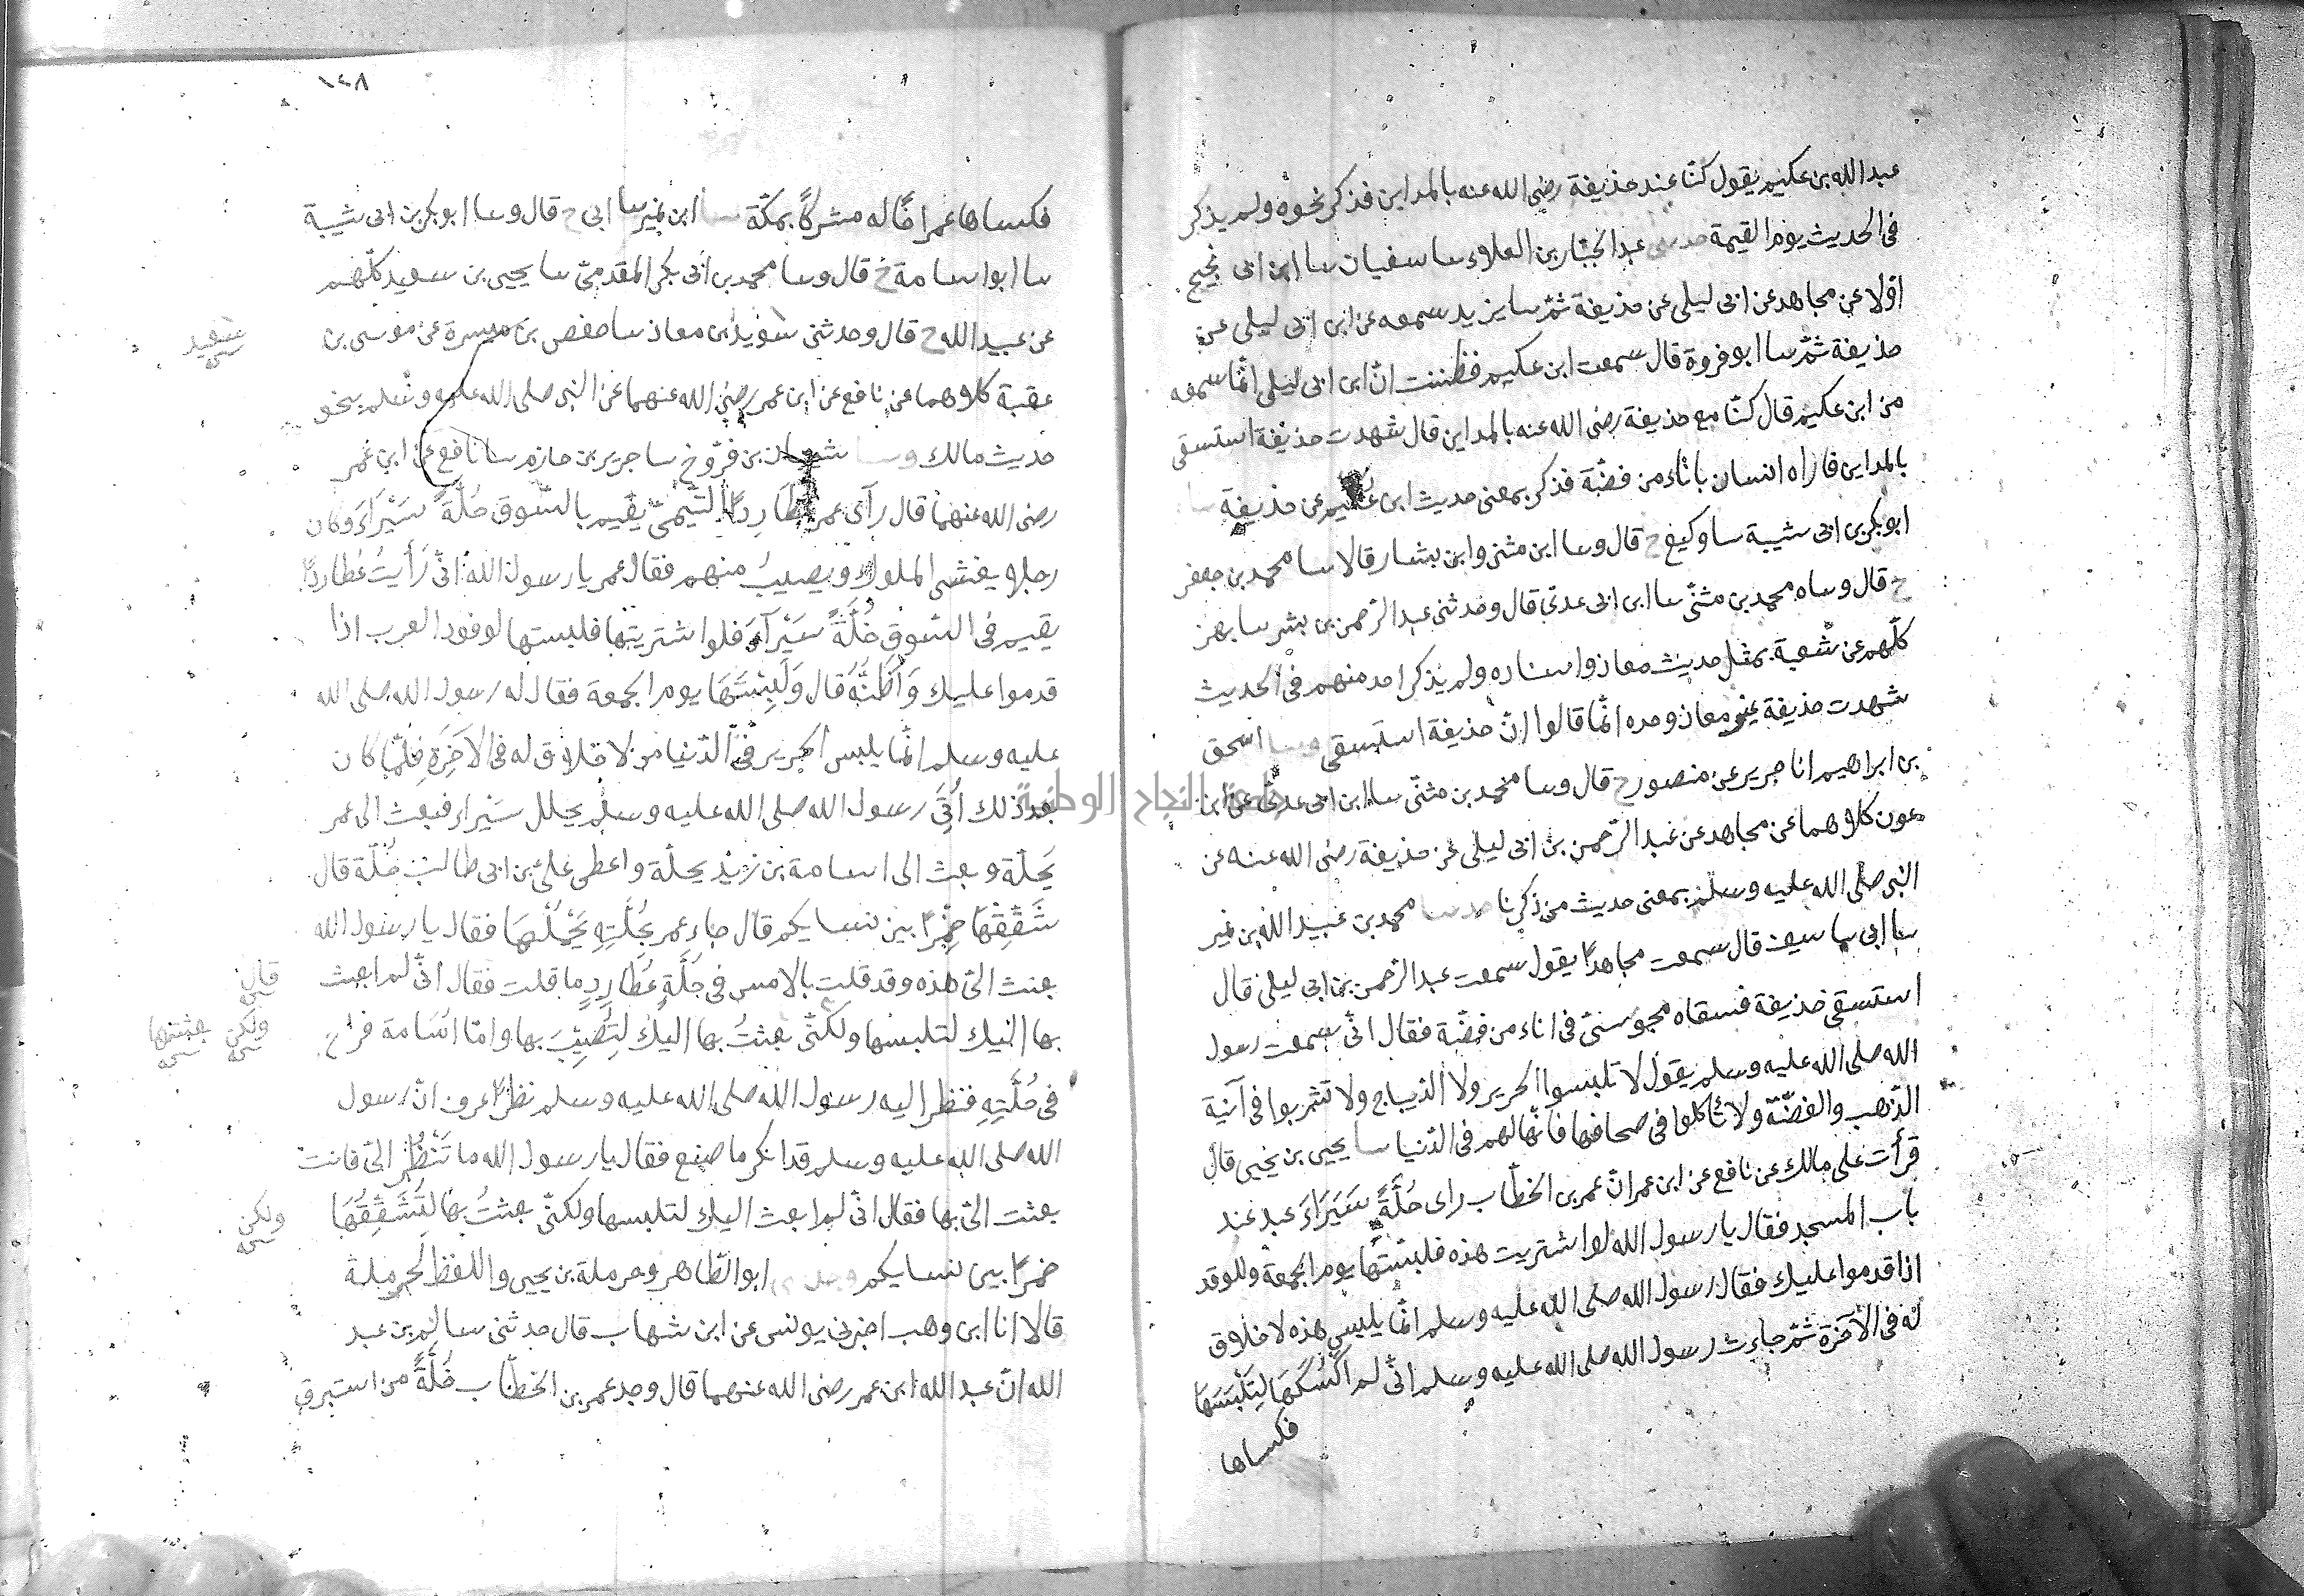 عبد الله بن عكيم يقول كنّا عند حذيفة رضى الله عنه بالمداين فذكر نحوه ولم يذكر
فى الحديث يوم القيمة حدثنى عبد الجبّار بن العلاء سا سفيان سا ابن ابى نجيح
اوّلا عن مجاهد عن ابى ليلى عن حذيفة ثمّ سا يزيد سمعه عن ابن ابى ليلى عن
حذيفة ثمّ سا ابو فروة قال سمعت ابن عكيم فظننت انّ ابن ابى ليلى انّما سمعه
من ابن عكيم قال كنّا مع حذيفة رضى الله عنه بالمداين قال شهدت حذيفة استسقى
بالمداين فاتاه انسان باناء من فضّة فذكر بمعنى حديث ابن عُكيم عن حذيفة سا
ابو بكر بن ابى شيبة سا وكيع ح قال وسا ابن مثنى وابن بشار قالا سا محمد بن جعفر
ح قال وساه محمد بن مثنّى سا ابن ابى عدىّ قال وحدثنى عبد الرّحمن بن بشر سا بهز
كلّهم عن شعبة بمثل حديث معاذ واسناده ولم يذكر احد منهم فى الحديث
شهدت حذيفة غير معاذ وحده انّما قالوا انّ حذيفة استسقى وسا اسحق
بن ابراهيم انا جرير عن منصور ح قال وسا محمد بن مثنّى سا ابن ابى عدىّ عن ابن
عون كلاهما عن مجاهد عن عبد الرّحمن بن ابى ليلى عن حذيفة رضى الله عنه عن
النّبى صلّى الله عليه وسلم بمعنى حديث من ذكرنا حدسا محمد بن عبيد الله بن نمير
سا ابى سا سيف قال سمعت مجاهدًا يقول سمعت عبد الرّحمن بن ابى ليلى قال
استسقى حذيفة فسقاه مجوسىّ فى اناء من فضّة فقال انّى سمعت رسول
الله صلى الله عليه وسلم يقول لا تلبسوا الحرير ولا الدّيباج ولا تشربوا فى آنية
الذّهب والفضّة ولا تأكلوا فى صحافها فانّها لهم فى الدّنيا سا يحيى بن يحيى قال
قرأت على مالك عن نافع عن ابن عمر انّ عمر بن الخطّاب راى حُلَّةً سَيَرَاءَ عبد عند
باب المسجد فقال يا رسول الله لو اشتريت هذه فلبستها يوم الجمعة وللوفد
اذا قدموا عليك فقال رسول الله صلى الله عليه وسلم انّما يلبس هذه لا خلاق
له فى الآخرة ثمّ جاءت رسول الله صلى الله عليه وسلم انّى لم اكسكها لتلبسها
فكساها
١٤٨
فكساها عمر اخًا له مشركًا بمكّة سا ابن نمير سا ابى ح قال وسا ابو بكر بن ابى شيبة
سا ابو اسامة ح قال وسا محمد بن ابى بكر المقدمىّ سا يحيى بن سعيد كلّهم
عن عبيد الله ح قال وحدثنى سويد بن معاذ سا حفص بن ميسرة عن موسى بن
سعيد
عقبة كلاهما عن نافع عن ابن عمر رضى الله عنهما عن النبى صلى الله عليه وسلم بنحو
حديث مالك وسا شيبان بن فرّوخ سا جرير بن حازم سا نافع عن ابن عمر
رضى الله عنهما قال رآى عمر عطاردًا التّيمىّ يقيم بالسّوق حُلَّةً سَيْرَاءَ وكان
رجلا يغشى الملوك ويصيبُ منهم فقال عمر يا رسول الله انّى رَأَيتُ عُطاردًا
يقيم فى السّوق حُلَّةً سَيْرآءَ فلو اشتريتها فلبستها لوفود العرب اذا
قدموا عليك وَاَظُنُّهُ قال وَلَبِسْتَهَا يوم الجمعة فقال له رسول الله صلى الله
عليه وسلم انّما يلبس الحرير فى الدّنيا من لا خلاق له فى الآخرة فلمّا كان
بعد ذلك اُتِىَ رسول الله صلى الله عليه وسلم بحلل سَيْراء فبعث الى عمر
بحلّة وبعث الى اسامة بن زيد بحلّة واعطى علىّ بن ابى طالب حُلّة قال
شَقِّقْهَا خُمُرًا بين نسايكم قال جاء عمر بحُلَّتِهِ يَحْمِلُهَا فقال يا رسول الله
بعثت الىّ هذه وقد قلت بالامس فى حُلَّةِ عُطَارِدٍ ما قلت فقال انّى لم ابعث
قال
بها اليك لتلبسها ولكنّى بعثتُ بها اليك لِتُصِيْبَ بها وامّا اسَامة فراح
ولكن
بعثتها
فى حُلَّتِهِ فنظر اليه رسول الله صلى الله عليه وسلم نظرًا عرف انّ رسول
الله صلى الله عليه وسلم قد انكر ما صنع فقال يا رسول الله ما تَنْظُرُ الىّ فانت
بعثت الىّ بها فقال انّى لم ابعث اليك لتلبسها ولكنّى بعثتُ بها لِتُشَقِّقَهَا
ولكن
خمرًا بين نسايكم وحدثنى ابو الطّاهر وحرملة بن يحيى واللفظ لحرملة
قالا انا ابن وهب اخبرنى يونس عن ابن شهاب قال حدثنى سالم بن عبد
الله انّ عبد الله ابن عمر رضى الله عنهما قال وجد عمر بن الخطّاب حُلَّةً من استبرق
جامعة النجاح الوطنية